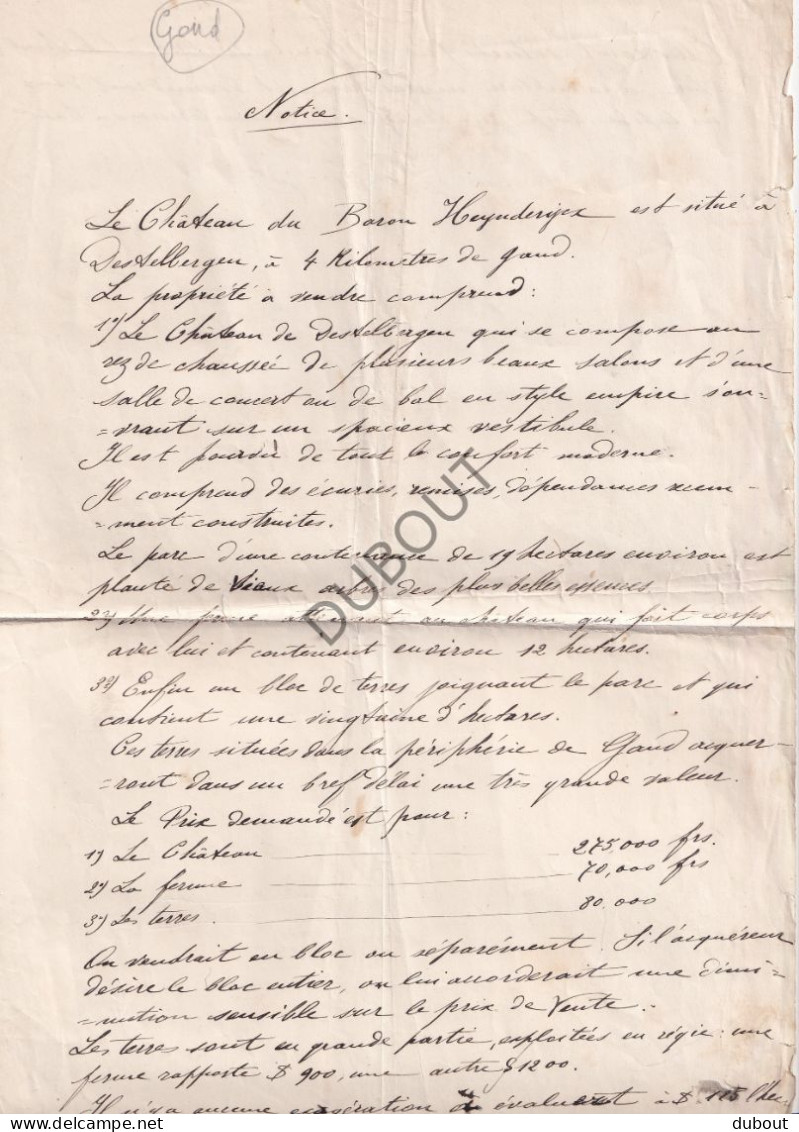 Gand
Notice.
Le Château du Baron Heynderyex est situé à
Destelbergen, à 4 Kilomètres de Gand.
La propriété à vendre comprend:
1º) Le Château de Destelbergen qui se compose au
rez de chaussée de plusieurs beaux salons et d'une
salle de concert ou de bal en style empire s'ou-
=vrant sur un spacieux vestibule.
Il est pourvu de tout le confort moderne.
Il comprend des écuries, remises, dépendances récem-
=ment construites.
Le parc d'une contenance de 19 hectares environ est
planté de vieux arbres des plus belles essences.
2º) Une ferme attenant au château qui fait corps
avec lui et contenant environ 12 hectares.
3º) Enfin un bloc de terres joignant le parc et qui
contient une vingtaine d'hectares.
Ces terres situées dans la périphérie de Gand acquer-
=ront dans un bref délai une très grande valeur.
Le Prix demandé est pour:
1º) Le Château 275,000 frs.
2º) La ferme 70,000 frs
3º) Les terres. 80,000
On vendrait en bloc ou séparément. Si l'acquéreur
désire le bloc entier, on lui accorderait une dimi-
=nution sensible sur le prix de Vente.
Les terres sont en grande partie, exploitées en régie: une
ferme rapporte $ 900, une autre $ 1200.
Il n'y a aucune exagération à évaluer à $ 115 l'hec
DUBOUT
delcampe.net
dubout